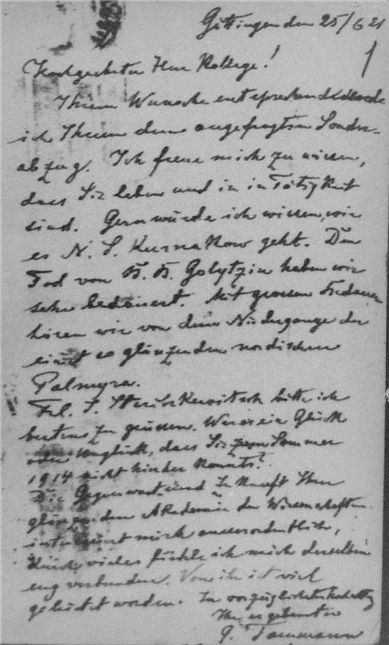 Göttingen den 25/6 21
Hochgeehrter Herr Kollege!
Ihrem Wunsche entsprechend sende
ich Ihnen den angefragten Sonder-
abzug. Ich freue mich zu wissen,
dass Sie leben und in Tätigkeit
sind. Gern würde ich wissen, wie
es N. S. Kurnakow geht. Den
Tod von B. B. Golytzin haben wir
sehr bedauert. Mit grossem Bedauern
hören wir von dem Niedergange der
einst so glänzenden nordischen
Palmyra.
Frl. bitte ich
bestens zu grüssen. War es ein Glück
oder Unglück, dass Sie zum Sommer
1914 nicht hierher konnten?
Die Gegenwart und Zukunft Ihrer
glänzenden Akademie der Wissenschaften
interessiert mich ausserordentlich,
fühle ich mich derselben
eng verbunden. Von ihr ist viel
geleistet worden. In vorzüglichster Hochachtung
Ihr ergebenster
G. Tammann